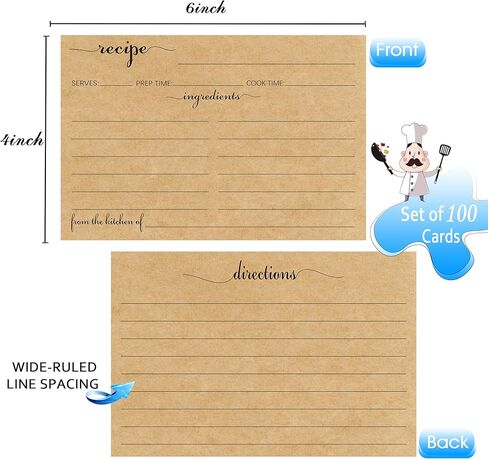 6inch
4inch
recipe
SERVES: PREP TIME: COOK TIME:
ingredients
from the kitchen of
Front
Set of 100
Cards
directions
WIDE-RULED
LINE SPACING
Back